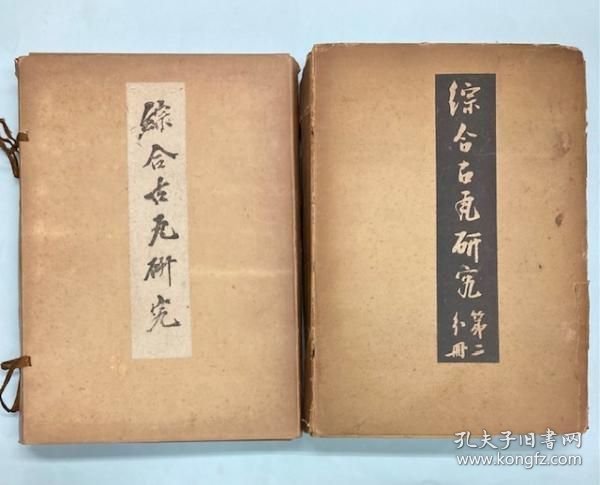 綜合古瓦研究
綜合古瓦研究
第二
分冊
孔夫子旧书网
www.kongfz.com